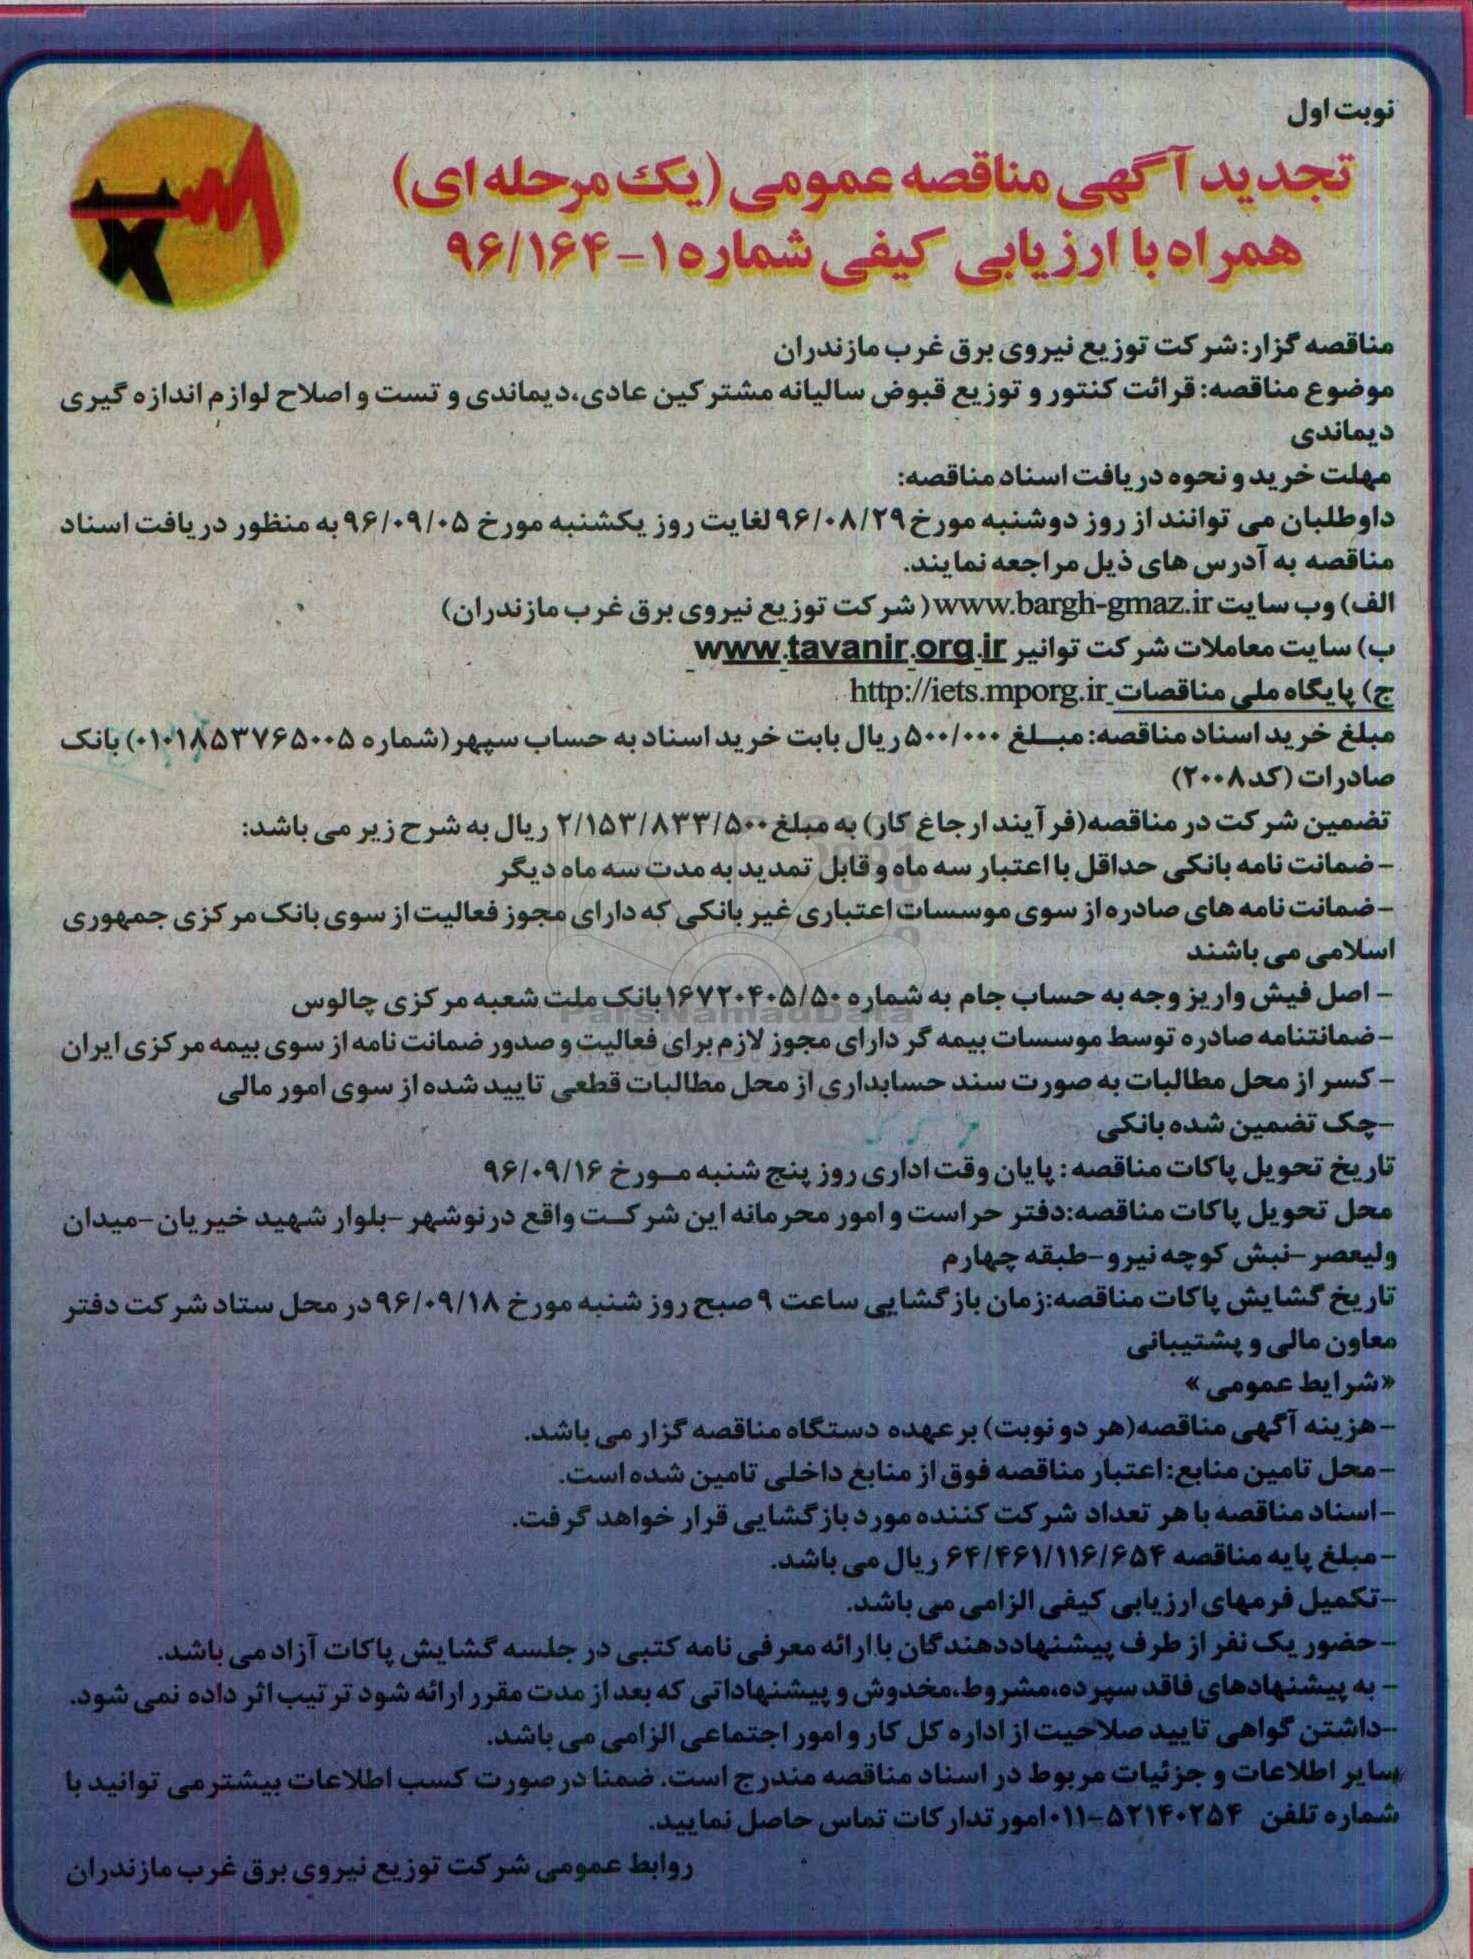 نوبت اول
تجدید آگهی مناقصه عمومی (یک مرحله ای)
همراه با ارزیابی کیفی شماره ۱-۹۶/۱۶۴
مناقصه گزار: شرکت توزیع نیروی برق غرب مازندران
موضوع مناقصه: قرائت کنتور و توزیع قبوض سالیانه مشترکین عادی،دیماندی و تست و اصلاح لوازم اندازه گیری
دیماندی
مهلت خرید و نحوه دریافت اسناد مناقصه:
داوطلبان می توانند از روز دوشنبه مورخ ۹۶/۰۸/۲۹ لغایت روز یکشنبه مورخ ۹۶/۰۹/۰۵ به منظور دریافت اسناد
مناقصه به آدرس های ذیل مراجعه نمایند.
الف) وب سایت www.bargh-gmaz.ir ( شرکت توزیع نیروی برق غرب مازندران)
ب) سایت معاملات شرکت توانیر www.tavanir.org.ir
ج) پایگاه ملی مناقصات http://iets.mporg.ir
مبلغ خرید اسناد مناقصه: مبلغ ۵۰۰/۰۰۰ ریال بابت خرید اسناد به حساب سپهر (شماره ۰۱۰۱۸۵۳۷۶۵۰۰۵) بانک
صادرات (کد ۲۰۰۸)
تضمین شرکت در مناقصه(فرآیند ارجاع کار) به مبلغ ۲/۱۵۳/۸۳۳/۵۰۰ ریال به شرح زیر می باشد:
- ضمانت نامه بانکی حداقل با اعتبار سه ماه و قابل تمدید به مدت سه ماه دیگر
- ضمانت نامه های صادره از سوی موسسات اعتباری غیر بانکی که دارای مجوز فعالیت از سوی بانک مرکزی جمهوری
اسلامی می باشند
- اصل فیش واریز وجه به حساب جام به شماره ۱۶۷۲۰۴۰۵/۵۰ بانک ملت شعبه مرکزی چالوس
ParsNamadData
- ضمانتنامه صادره توسط موسسات بیمه گر دارای مجوز لازم برای فعالیت و صدور ضمانت نامه از سوی بیمه مرکزی ایران
- کسر از محل مطالبات به صورت سند حسابداری از محل مطالبات قطعی تایید شده از سوی امور مالی
-چک تضمین شده بانکی
تاریخ تحویل پاکات مناقصه: پایان وقت اداری روز پنج شنبه مورخ ۹۶/۰۹/۱۶
محل تحویل پاکات مناقصه:دفتر حراست و امور محرمانه این شرکت واقع در نوشهر -بلوار شهید خیریان -میدان
ولیعصر -نبش کوچه نیرو -طبقه چهارم
تاریخ گشایش پاکات مناقصه:زمان بازگشایی ساعت ۹ صبح روز شنبه مورخ ۹۶/۰۹/۱۸ در محل ستاد شرکت دفتر
معاون مالی و پشتیبانی
«شرایط عمومی»
- هزینه آگهی مناقصه(هر دو نوبت) بر عهده دستگاه مناقصه گزار می باشد.
- محل تامین منابع: اعتبار مناقصه فوق از منابع داخلی تامین شده است.
- اسناد مناقصه با هر تعداد شرکت کننده مورد بازگشایی قرار خواهد گرفت.
- مبلغ پایه مناقصه ۶۴/۴۶۱/۱۱۶/۶۵۴ ریال می باشد.
-تکمیل فرمهای ارزیابی کیفی الزامی می باشد.
- حضور یک نفر از طرف پیشنهاددهندگان با ارائه معرفی نامه کتبی در جلسه گشایش پاکات آزاد می باشد.
- به پیشنهادهای فاقد سپرده،مشروط،مخدوش و پیشنهاداتی که بعد از مدت مقرر ارائه شود ترتیب اثر داده نمی شود.
-داشتن گواهی تایید صلاحیت از اداره کل کار و امور اجتماعی الزامی می باشد.
سایر اطلاعات و جزئیات مربوط در اسناد مناقصه مندرج است. ضمنا در صورت کسب اطلاعات بیشتر می توانید با
شماره تلفن ۵۲۱۴۰۲۵۴-۰۱۱ امور تدارکات تماس حاصل نمایید.
روابط عمومی شرکت توزیع نیروی برق غرب مازندران